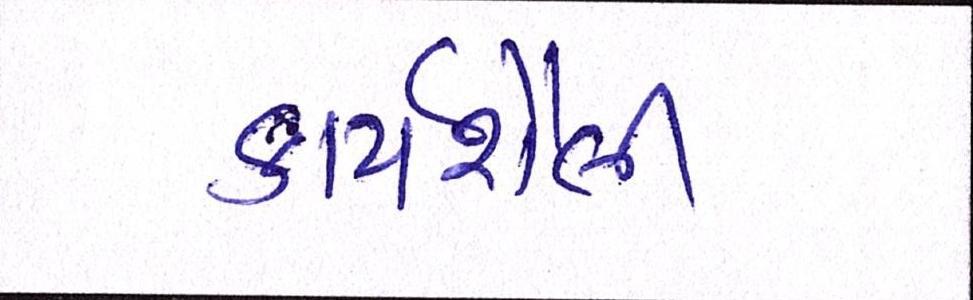 કાર્યશૈલી